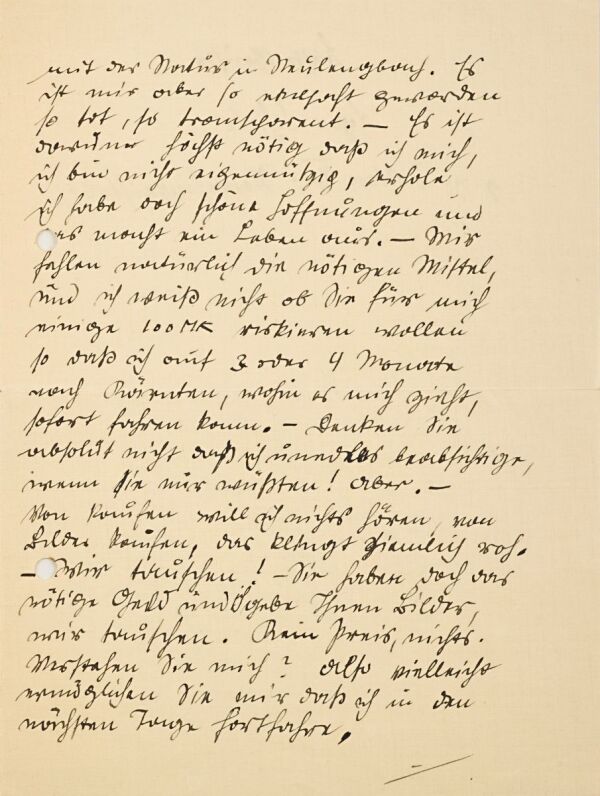 mit der Natur in Neulengbach. Es
ist mir aber so ekelhaft geworden
so tot, so transparent. — Es ist
darum höchst nötig daß ich mich,
ich bin nicht eigennützig, erhole
ich habe noch schöne Hoffnungen und
das macht ein Leben aus. — Mir
fehlen natürlich die nötigen Mittel,
und ich weiß nicht ob Sie für mich
einige 100 MK riskieren wollen
so daß ich auf 3 oder 4 Monate
nach Kärnten, wohin es mich zieht,
sofort fahren kann. — Denken Sie
absolut nicht daß ich unedles beabsichtige,
wenn Sie nur wüßten! aber. —
Von kaufen will ich nichts hören, von
Bilder kaufen, das klingt ziemlich roh.
— Wir tauschen! — Sie haben doch das
nötige Geld und ich gebe Ihnen Bilder,
wir tauschen. Kein Preis, nichts.
Verstehen Sie mich? also vielleicht
ermöglichen Sie mir daß ich in den
nächsten Tage fortfahre,